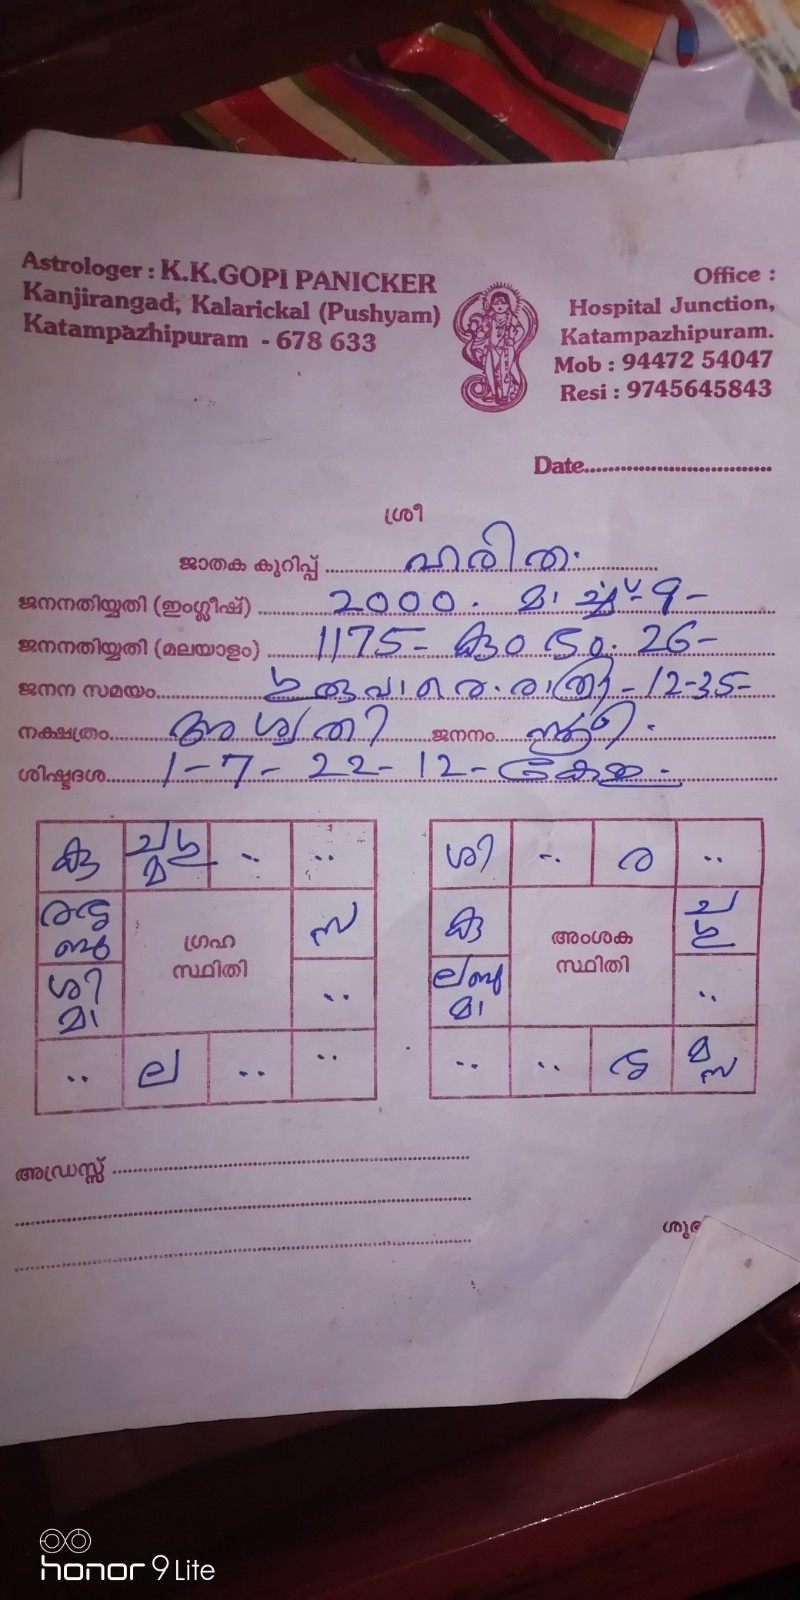 Astrologer : K.K.GOPI PANICKER
Kanjirangad, Kalarickal (Pushyam)
Katampazhipuram - 678 633
Office :
Hospital Junction,
Katampazhipuram.
Mob : 94472 54047
Resi : 9745645843
Date
ശ്രീ
ജാതക കുറിപ്പ് ഹരിത.
ജനനതിയ്യതി (ഇംഗ്ലീഷ്) 2000. മാർച്ച് - 9 -
ജനനതിയ്യതി (മലയാളം) 1175 - കുംഭം. 26 -
ജനന സമയം രാത്രി - 12-35 -
നക്ഷത്രം അശ്വതി ജനനം സ്ത്രീ.
ശിഷ്ടദശ 1 - 7 - 22 - 12 - കേതു.
കു ച ഗു .. ..
മ
ര ശു
ബു
ഗ്രഹ
സ്ഥിതി
സ
ശി
മാ
..
.. ല .. ..
ശി .. ര ..
കു
അംശക
സ്ഥിതി
ച
ഗു
ല ബു
മാ
..
.. .. ശു മ
സ
അഡ്രസ്സ്
honor 9 Lite